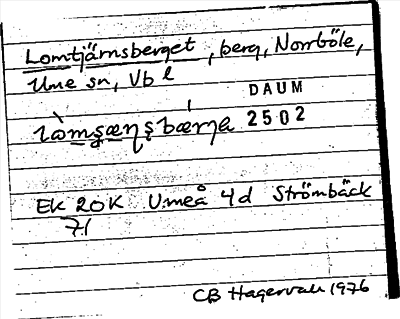 Lomtjärnsberget, berg, Norrböle,
Ume sn, Vb l
DAUM
2502
Ek 20K Umeå 4d Strömbäck
71
CB Hagervall 1976